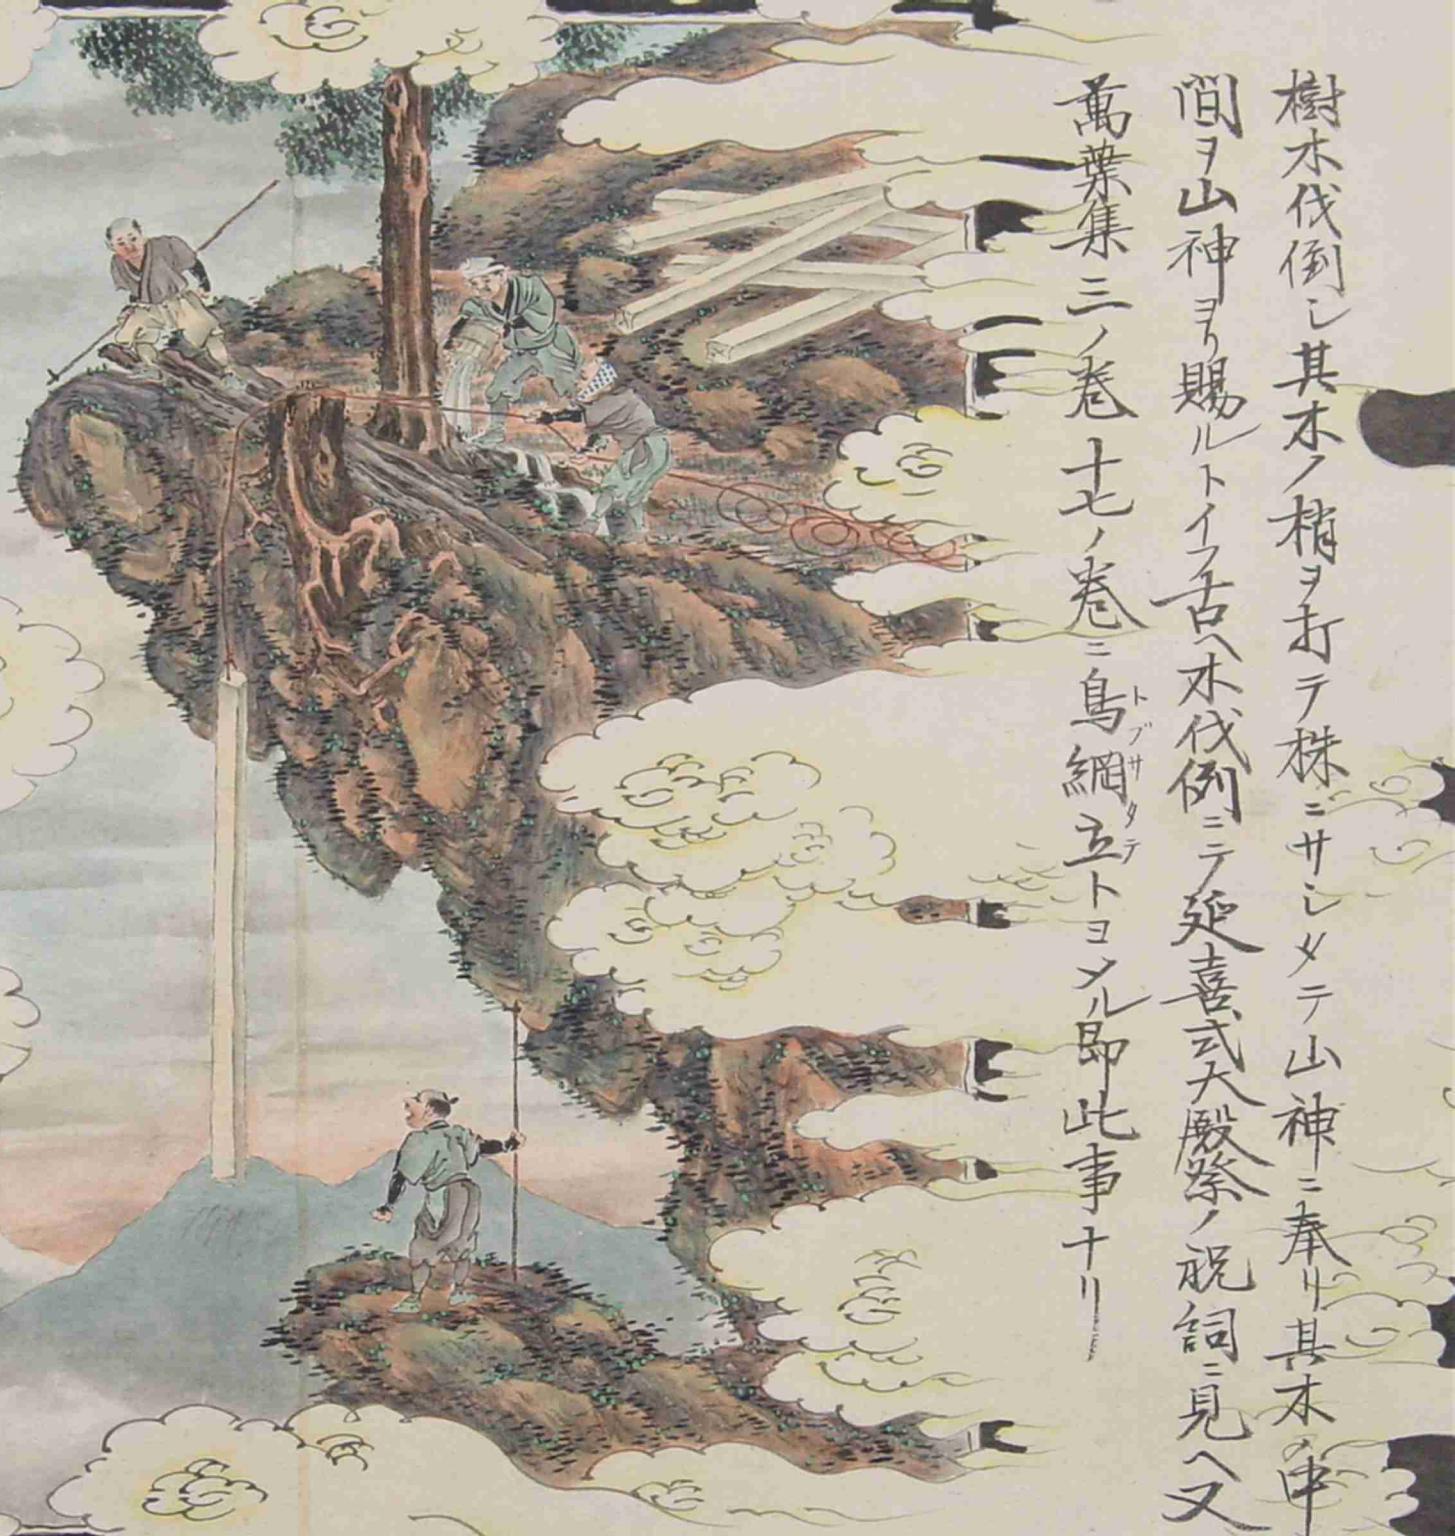 樹木伐倒し其木ノ梢ヲ打テ株ニサシタテ山神ニ奉リ其木ノ中
間ヲ山神ヨリ賜ルトイフ古ヘ木伐例ニテ延喜式大殿祭ノ祝詞ニ見ヘ又
萬葉集三ノ巻十七ノ巻ニ鳥網立トヨメル即此事ナリ
トブサタテ